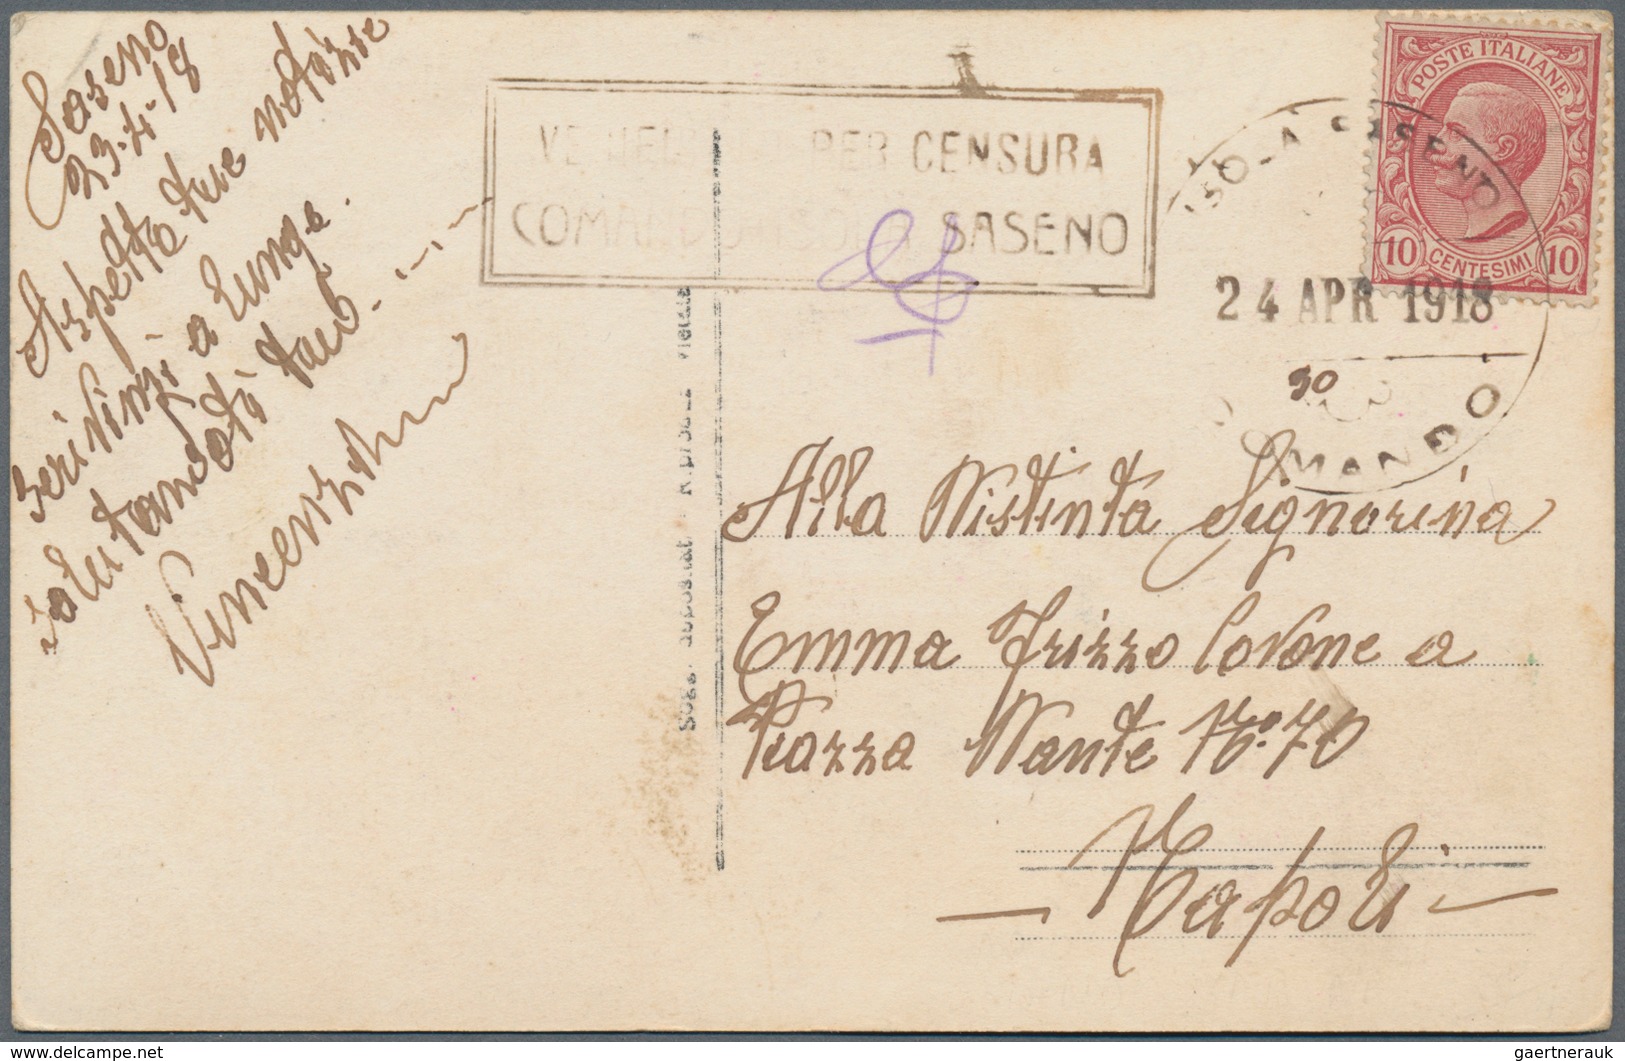 Saseno
23-4-18
Aspetto tue notizie
scrivimi a lungo.
salutandoti tuo
Vincenzino
VE PER CENSURA
COMANDO SASENO
POSTE ITALIANE
10 CENTESIMI 10
ISOLA SASENO
24 APR 1918
COMANDO
Alla Distinta Signorina
Emma Frizzo Covone a
Piazza Dante No. 70
Napoli
gaertnerauk
delcampe.net